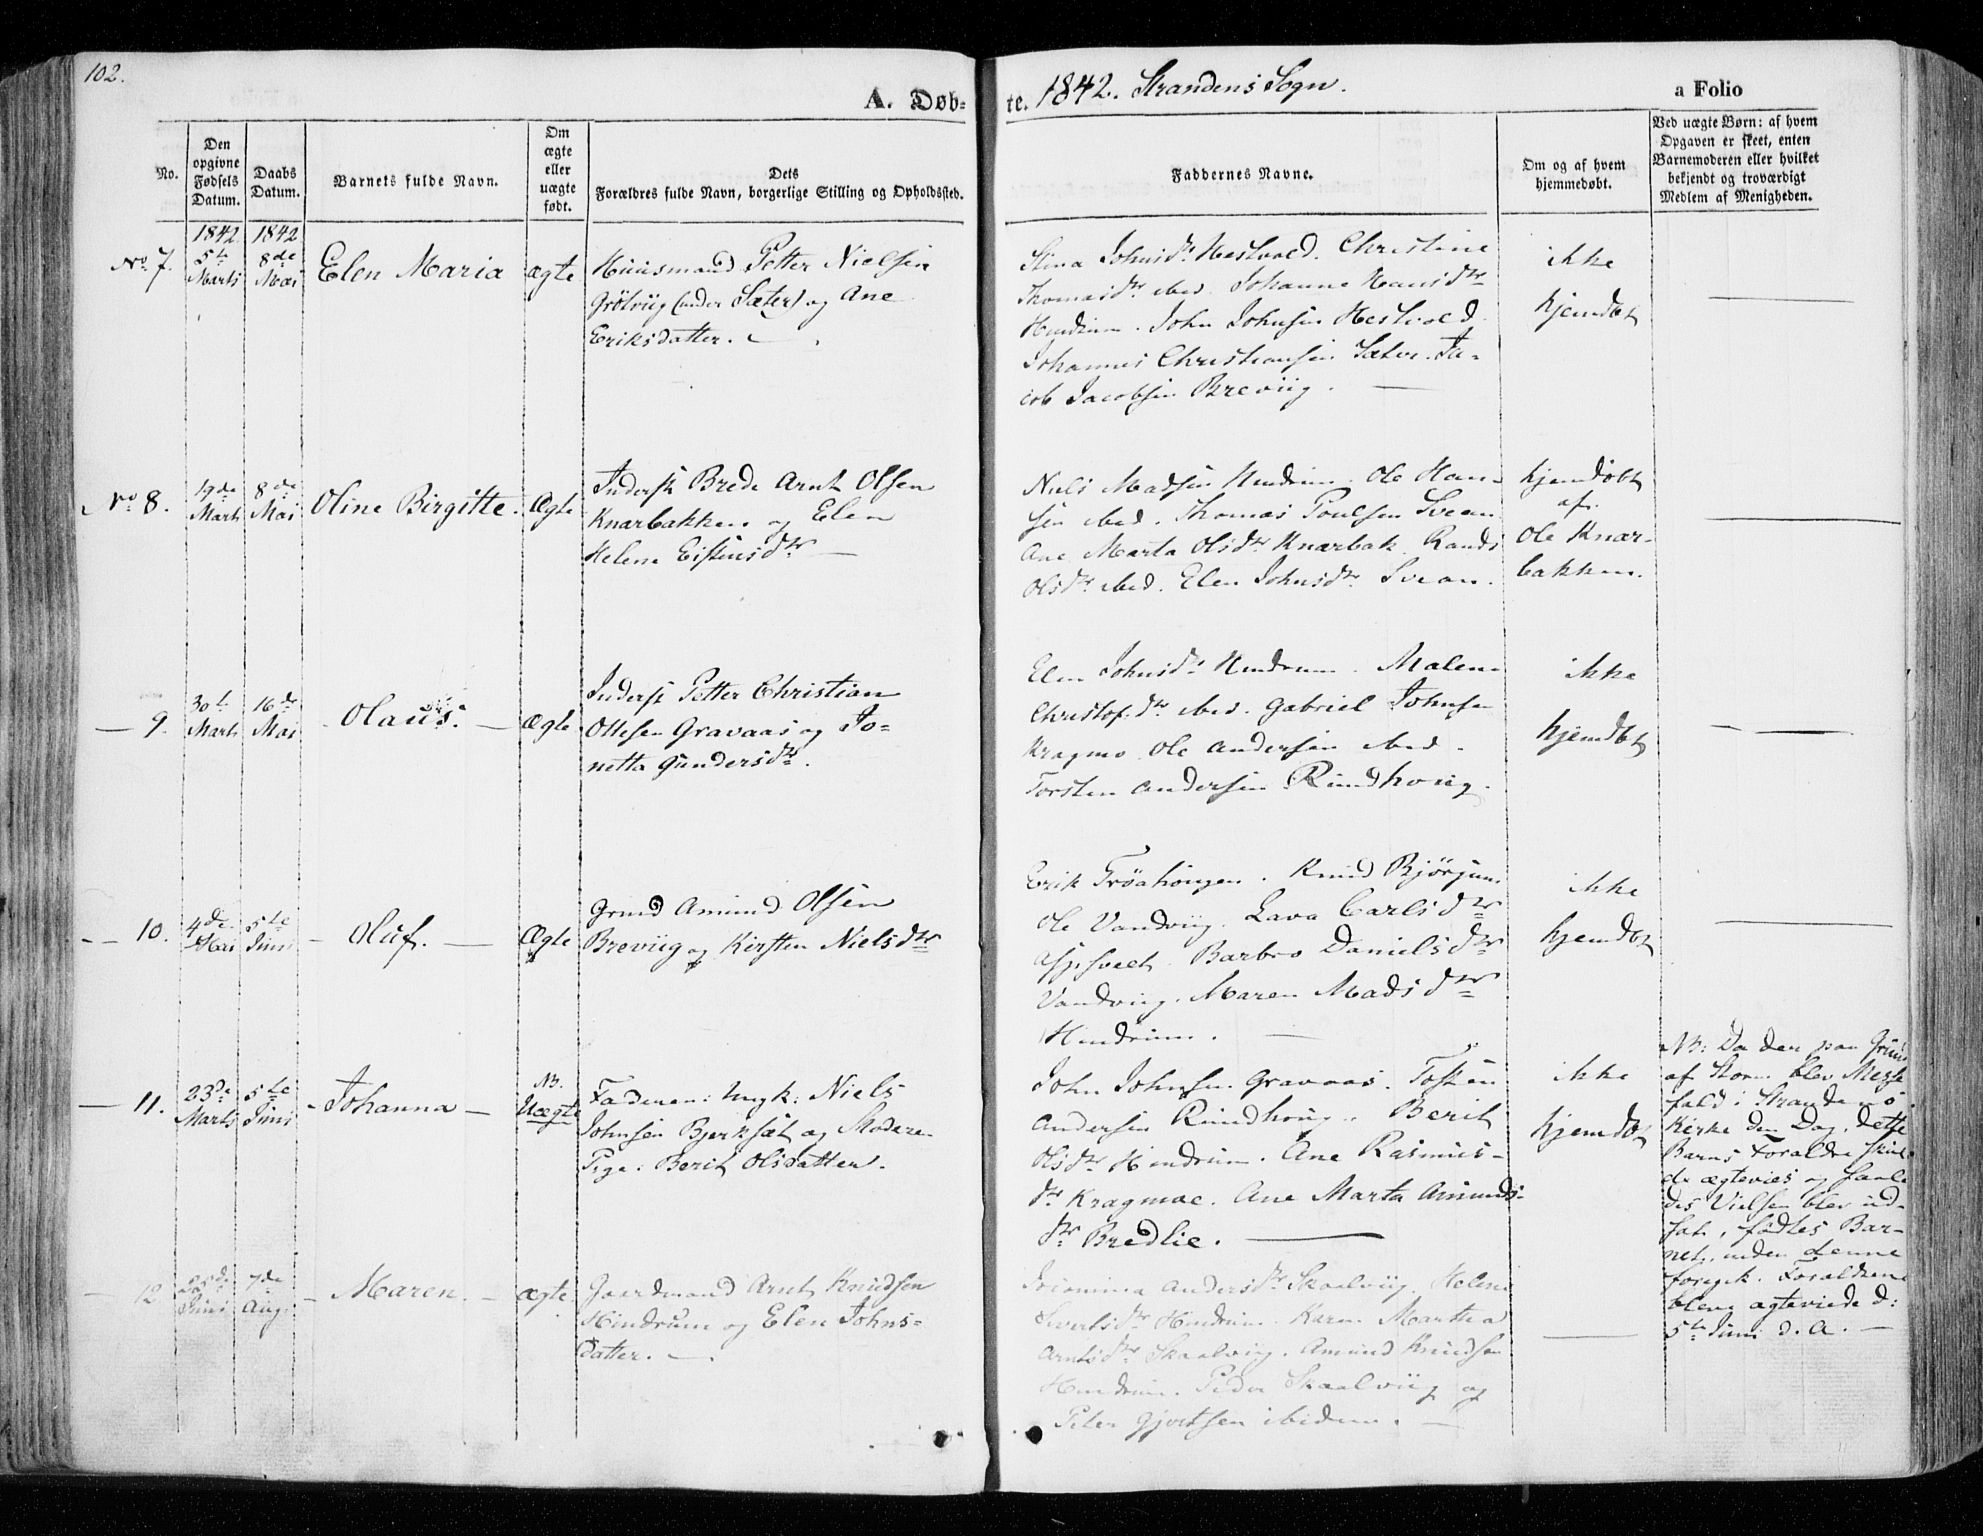 102.
A. Døb-
te. 1842. Strandens Sogn.
a Folio
No.
Den
opgivne
Fødsels
Datum.
Daabs
Datum.
Barnets fulde Navn.
Om
ægte
eller
uægte
født.
Dets
Forældres fulde Navn, borgerlige Stilling og Opholdssted.
Faddernes Navne.
Om og af hvem
hjemmedøbt.
Ved uægte Børn: af hvem
Opgaven er skeet, enten
Barnemoderen eller hvilket
bekjendt og troværdigt
Medlem af Menigheden.
No. 7.
1842
5te
Marts
1842
8de
Mai
Elen Maria
ægte
Huusmand Petter Nielsen
Grötviig (under Sæter) og Ane
Eriksdatter.
Stina Johnsdtr Hestvold. Christine
Thomasdtr ibid. Johanna Hansdtr
Hindrum. John Johnsen Hestvold
Johannes Christiansen Sæter. Ja-
cob Jacobsen Breviig.
ikke
hjemdøbt
No. 8.
19de
Marts
8de
Mai
Oline Birgitte.
Ægte
Inderst Brede Arnt Olsen
Knarbakken og Elen
Helena Eistensdtr
Niels Madsen Hindrum. Ole Han-
sen ibid. Thomas Poulsen Svean
Ane Marta Olsdtr Knarbak. Randi
Olsdtr ibid. Elen Johnsdtr Svean.
hjemdøbt
af
Ole Knar-
bakken.
9.
30te
Marts
16de
Mai
Olaus.
Ægte
Inderst Petter Christian
Ottesen Gravaas og Jo-
netta Gundersdtr.
Elen Johnsdtr Hindrum. Malena
Christof.dtr ibid. Gabriel Johnsen
Kragmo. Ole Andersen ibid.
Torsten Andersen Rindhoug.
ikke
hjemdøbt
10.
4de
Mai
5te
Juni
Oluf.
Ægte
Grmd Amund Olsen
Breviig og Kirsten Nielsdtr
Erik Tröahougen. Knud Bjørgum
Ole Vandviig. Lava Carlsdtr
Barbro Danielsdtr
Vandviig. Maren Madsdtr
Hindrum.
ikke
hjemdøbt
11.
23de
Marts
5te
Juni
Johanna
NB.
Uægte
Faderen: Ungk: Niels
Johnsen Bjerksæt og Moderen
Pige: Berit Olsdatter.
John Johnsen Gravaas. Tosten
Andersen Rindhoug. Berit
Olsdtr Hindrum. Ane Rasmus-
dtr Kragmoe. Ane Marta Amunds-
dtr Bredlie.
ikke
hjemdøbt
NB: Da der paa Grund
af Storm blev Messe-
fald i Strandens
Kirke den Dag, dette
Barns Foraldre skul-
de ægtevies og saale-
des Vielsen blev ud-
sat, fødtes Bar-
net, inden denne
foregik. Foraldrene
bleve ægteviede d:
5te Juni d. A.
12
25de
Juni
7de
Aug.
Maren.
ægte
Gaardmand Arnt Knudsen
Hindrum og Elen Johns-
datter.
Andersdtr Skaalviig. Helena
Sivertsdtr Hindrum. Karen Martha
Arntsdtr Skaalviig. Amund Knudsen
Hindrum. Peder Skaalviig og
Peter Gjertsen ibidem.